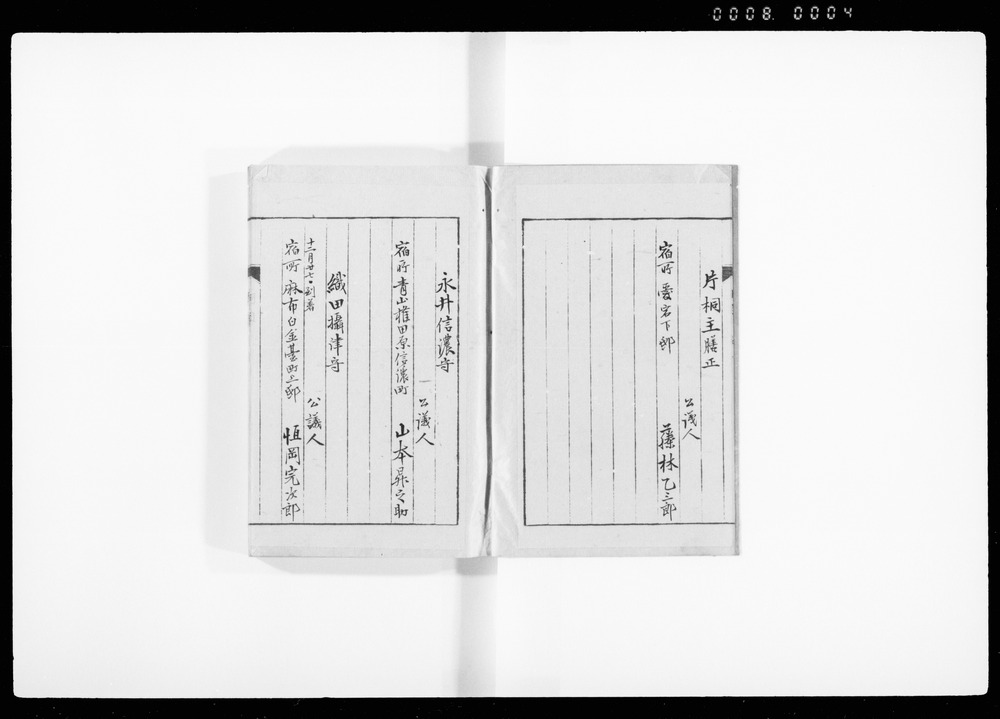 0008. 0004
片桐主膳正
公議人
宿所 愛宕下邸
藤林乙三郎
永井信濃守
公議人
宿所 青山権田原信濃町
山本昇之助
織田攝津守
十二月廿七日到著
公議人
宿所 麻布白金臺町上邸
恒岡完次郎